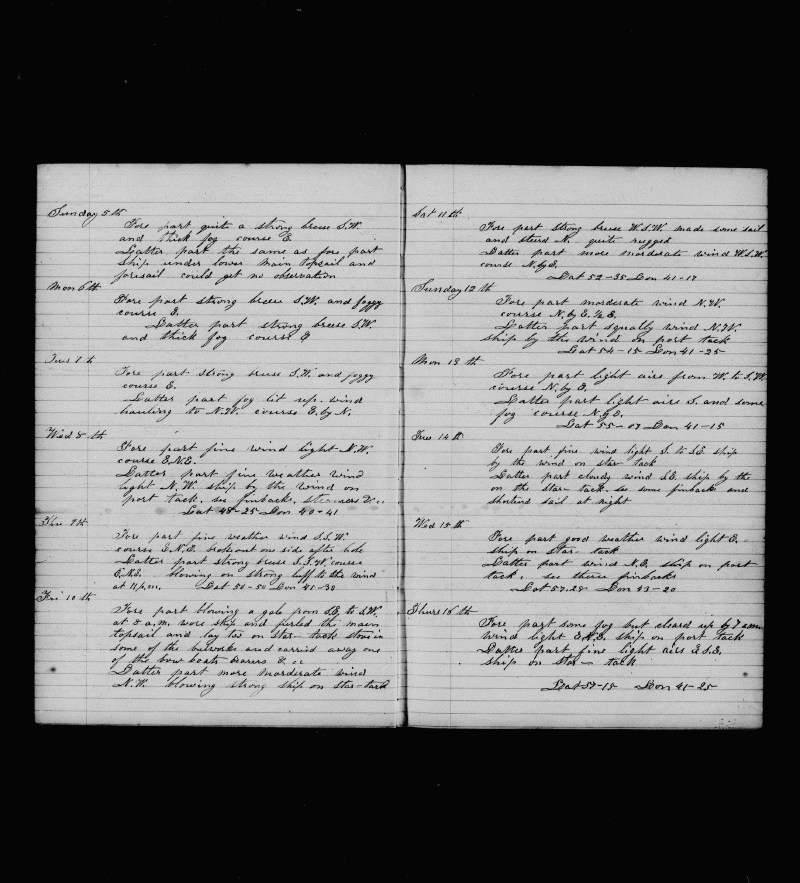 Sunday 5th
Fore part quite a strong breese S.W.
and thick fog course E
Latter part the same as fore part
ship under lower main topsail and
foresail could get no observation
Mon 6th
Fore part strong breese S.W. and foggy
course E.
Latter part strong breese S.W.
and thick fog course E
Tues 7th
Fore part strong breese S.W. and foggy
course E.
Latter part fog lit up. wind
hauling to N.W. course E. by N.
Wed 8th
Fore part fine wind light N.W.
course E.N.E.
Latter part fine weather wind
light N.W. ship by the wind on
port tack. see finback, steamers &c.
Lat 48-25 Lon 40-41
Thu 9th
Fore part fine weather wind S.S.W.
course E.N.E. broke out one side after hole
Latter part strong breese S.S.W. course
E.N.E. blowing on strong luff to the wind
at 11 p.m. Lat 50 Lon 41-30
Fri 10th
Fore part blowing a gale from S.E. to S.W.
at 8 a.m. wore ship and furled the main
topsail and lay too on star- tack stove in
some of the bulworks and carried away one
of the bow boats bearers &c
Latter part more morderate wind
N.W. blowing strong ship on star- tack
Sat 11th
Fore part strong breese W.S.W. made some sail
and steerd N. quite rugged
Latter part more morderate wind W.S.W.
course N. by E.
Lat 52-35 Lon 41-17
Sunday 12th
Fore part morderate wind N.W.
course N. by E. ½ E.
Latter part squally wind N.W.
ship by the wind on port tack
Lat 54-15 Lon 41-25
Mon 13th
Fore part light airs from W. to S.W.
course N. by E.
Latter part light airs S. and some
fog course N. by E.
Lat 55-07 Lon 41-15
Tues 14th
Fore part fine wind light S. to S.E. ship
by the wind on star- tack
Latter part cloudy wind S.E. ship by the
on the star- tack. see some finback and
shortend sail at night
Wed 15th
Fore part good weather wind light E.
ship on star- tack
Latter part wind N.E. ship on port
tack. see three finbacks
Lat 57-28 Lon 43-20
Thurs 16th
Fore part some fog but cleard up by 7 a.m.
wind light E.N.E. ship on port tack
Latter part fine light airs E.S.E.
ship on star- tack
Lat 57-15 Lon 41-25